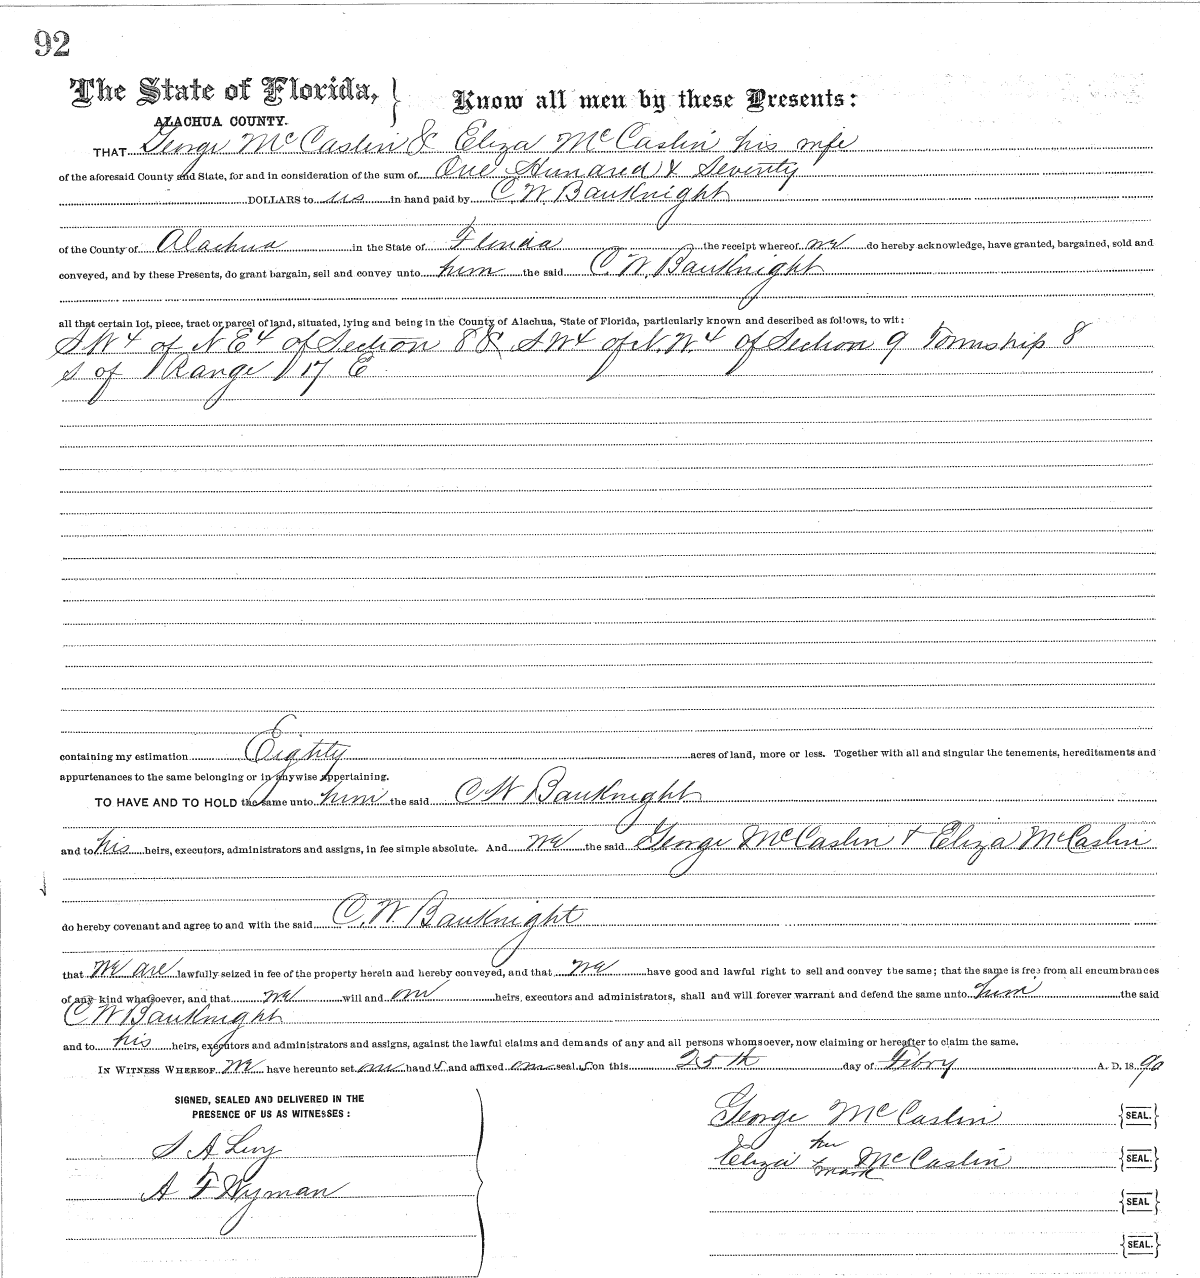 92
The State of Florida,
ALACHUA COUNTY.
Know all men by these Presents:
THAT George McCaslin & Eliza McCaslin his wife
of the aforesaid County and State, for and in consideration of the sum of One Hundred & Seventy
DOLLARS to us in hand paid by C. W. BauKnight
of the County of Alachua in the State of Florida the receipt whereof we do hereby acknowledge, have granted, bargained, sold and
conveyed, and by these Presents, do grant bargain, sell and convey unto him the said C. W. BauKnight
all that certain lot, piece, tract or parcel of land, situated, lying and being in the County of Alachua, State of Florida, particularly known and described as follows, to wit:
SW4 of NE4 of Section 8 & SW4 of N.W.4 of Section 9 Township 8
S of Range 17 E
containing my estimation Eighty acres of land, more or less. Together with all and singular the tenements, hereditaments and
appurtenances to the same belonging or in anywise appertaining.
TO HAVE AND TO HOLD the same unto him the said C W BauKnight
and to his heirs, executors, administrators and assigns, in fee simple absolute. And we the said George McCaslin & Eliza McCaslin
do hereby covenant and agree to and with the said C. W. BauKnight
that we are lawfully seized in fee of the property herein and hereby conveyed, and that we have good and lawful right to sell and convey the same; that the same is free from all encumbrances
of any kind whatsoever, and that we will and our heirs, executors and administrators, shall and will forever warrant and defend the same unto him the said
C W BauKnight
and to his heirs, executors and administrators and assigns, against the lawful claims and demands of any and all persons whomsoever, now claiming or hereafter to claim the same.
IN WITNESS WHEREOF we have hereunto set our hand s and affixed our seal s on this 25th day of Feby A. D. 18 90
SIGNED, SEALED AND DELIVERED IN THE
PRESENCE OF US AS WITNESSES:
S A Levy
A F Wyman
George McCaslin {SEAL.}
her
Eliza x McCaslin {SEAL.}
mark
{SEAL}
{SEAL.}